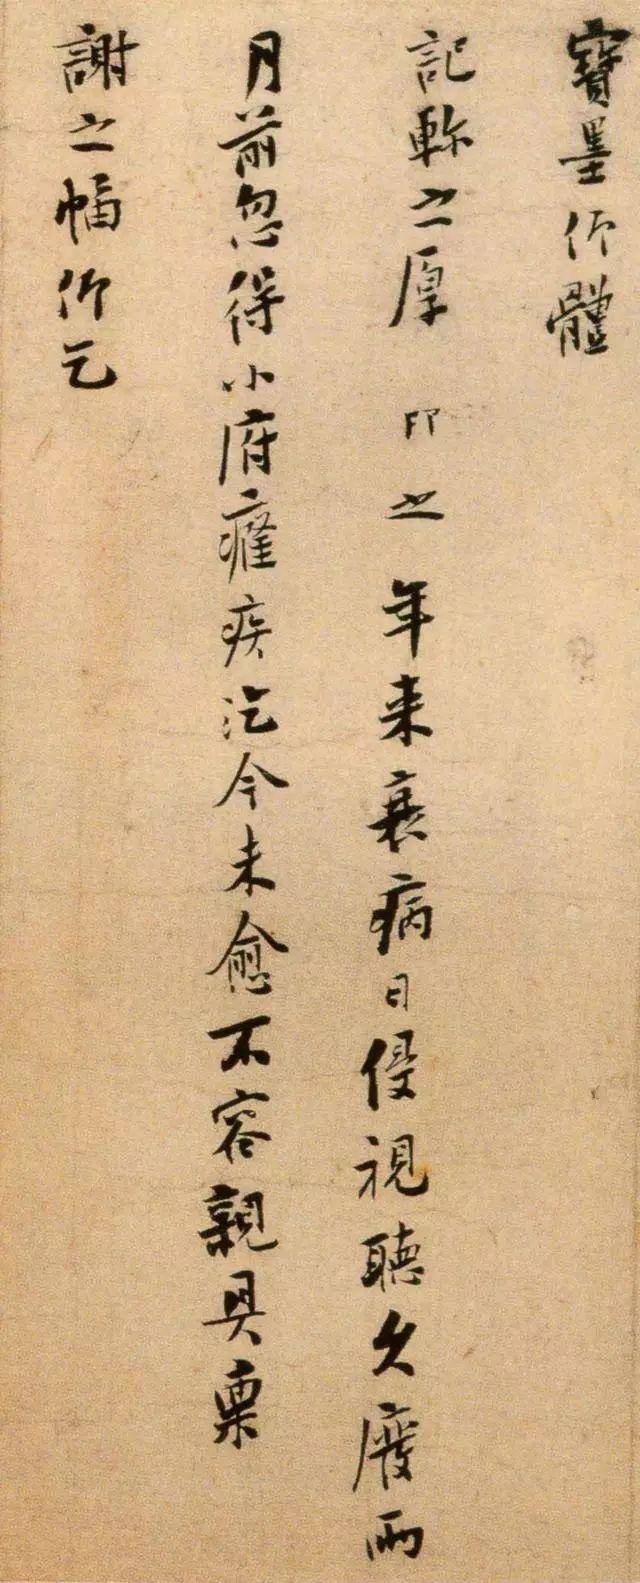 寶墨仰體
記軫之厚 印之 年来衰病日侵視聽久廢兩
月前忽得小府癰疾迄今未愈不容親具稟
謝之幅仰乞